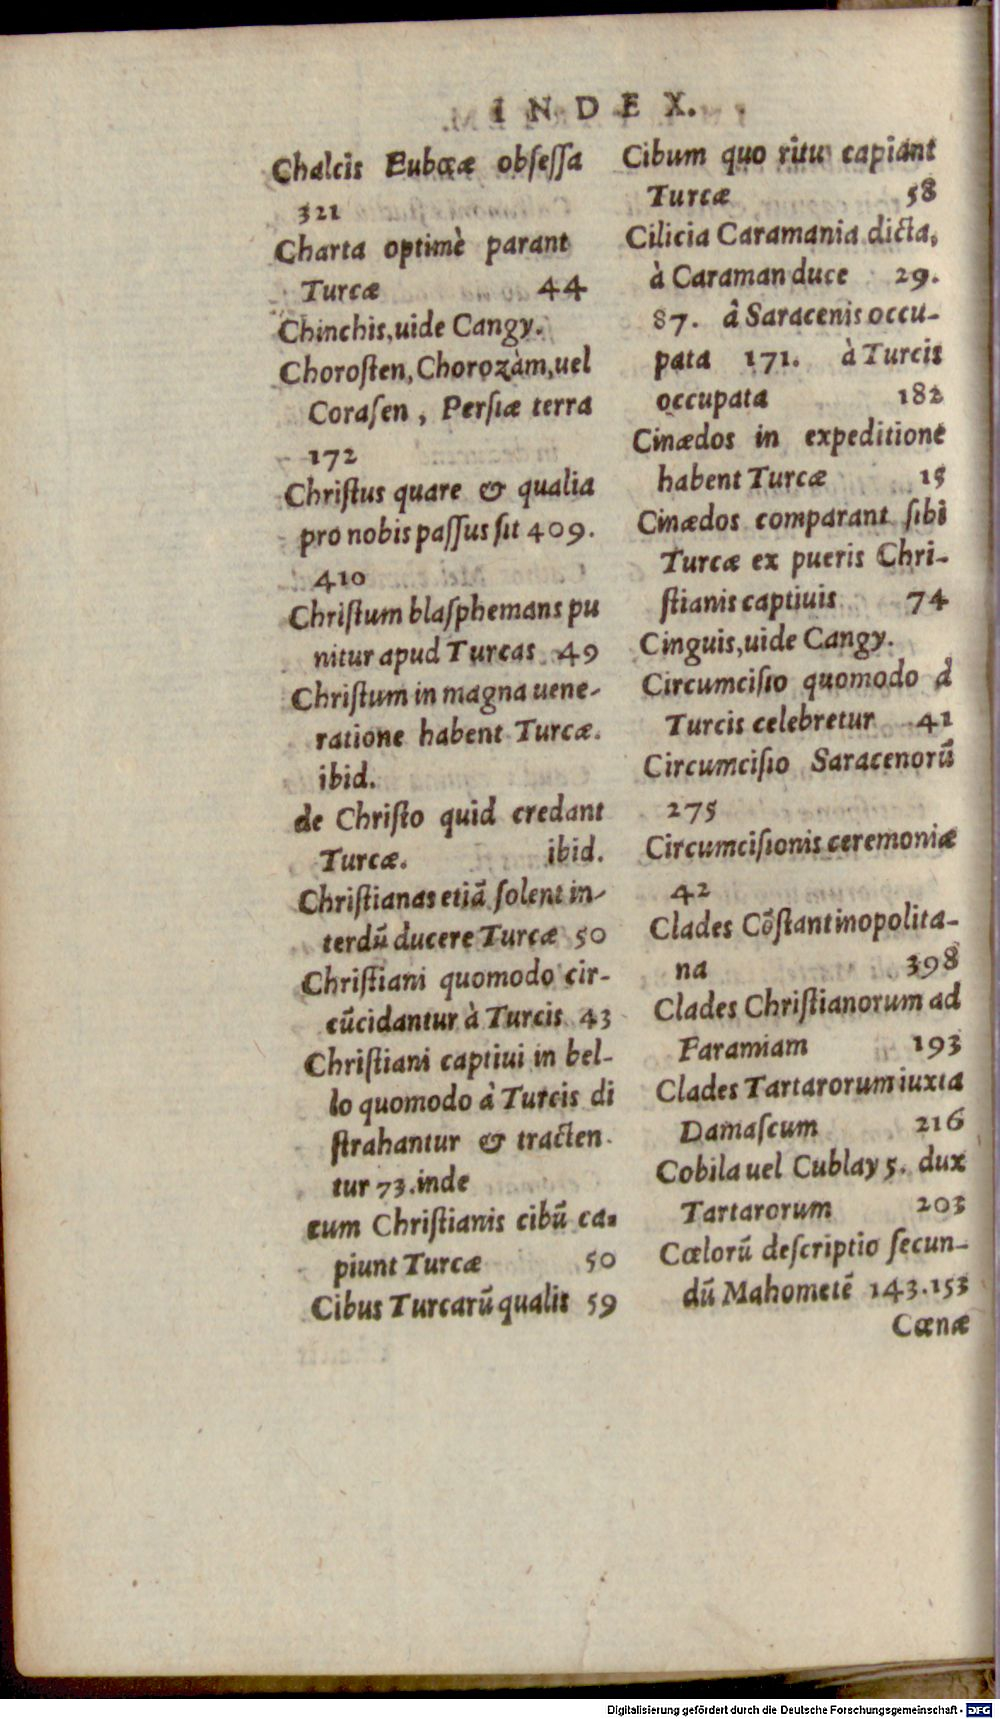 INDEX.
Chalcis Eubœæ obſeſſa
321
Charta optimè parant
Turcæ 44
Chinchis, uide Cangy.
Choroſten, Chorozàm, uel
Coraſen, Perſiæ terra
172
Chriſtus quare & qualia
pro nobis paſſus ſit 409.
410
Chriſtum blaſphemans pu
nitur apud Turcas 49
Chriſtum in magna uene-
ratione habent Turcæ.
ibid.
de Chriſto quid credant
Turcæ. ibid.
Chriſtianas etiã ſolent in-
terdũ ducere Turcæ 50
Chriſtiani quomodo cir-
cũcidantur à Turcis 43
Chriſtiani captiui in bel-
lo quomodo à Turcis di
ſtrahantur & tracten-
tur 73. inde
cum Chriſtianis cibũ ca-
piunt Turcæ 50
Cibus Turcarũ qualis 59
Cibum quo ritu capiant
Turcæ 58
Cilicia Caramania dicta,
à Caraman duce 29.
87. à Saracenis occu-
pata 171. à Turcis
occupata 182
Cinædos in expeditione
habent Turcæ 15
Cinædos comparant ſibi
Turcæ ex pueris Chri-
ſtianis captiuis 74
Cinguis, uide Cangy.
Circumciſio quomodo à
Turcis celebretur 41
Circumciſio Saracenorũ
275
Circumciſionis ceremoniæ
42
Clades Cõſtantinopolita-
na 398
Clades Chriſtianorum ad
Faramiam 193
Clades Tartarorum iuxta
Damaſcum 216
Cobila uel Cublay 5. dux
Tartarorum 203
Cœlorũ deſcriptio ſecun-
dũ Mahometẽ 143.153
Cœnæ
Digitalisierung gefördert durch die Deutsche Forschungsgemeinschaft - DFG